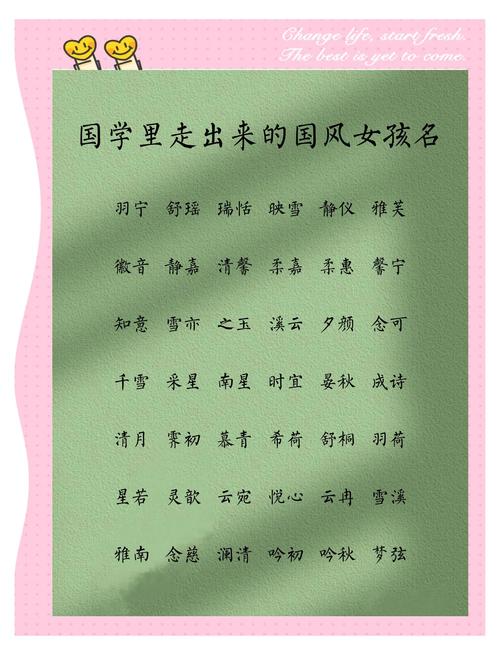 Change life, start fresh.
The best is yet to come.
国学里走出来的国风女孩名
羽宁 舒瑶 瑞恬 映雪 静仪 雅芙
徽音 静嘉 清馨 柔嘉 柔惠 馨宁
知意 雪亦 之玉 溪云 夕颜 念可
千雪 采星 南星 时宜 晏秋 成诗
清月 霁初 慕青 希荷 舒桐 羽荷
星若 灵歆 云宛 悦心 云冉 雪溪
雅南 念慈 澜清 吟初 吟秋 梦弦